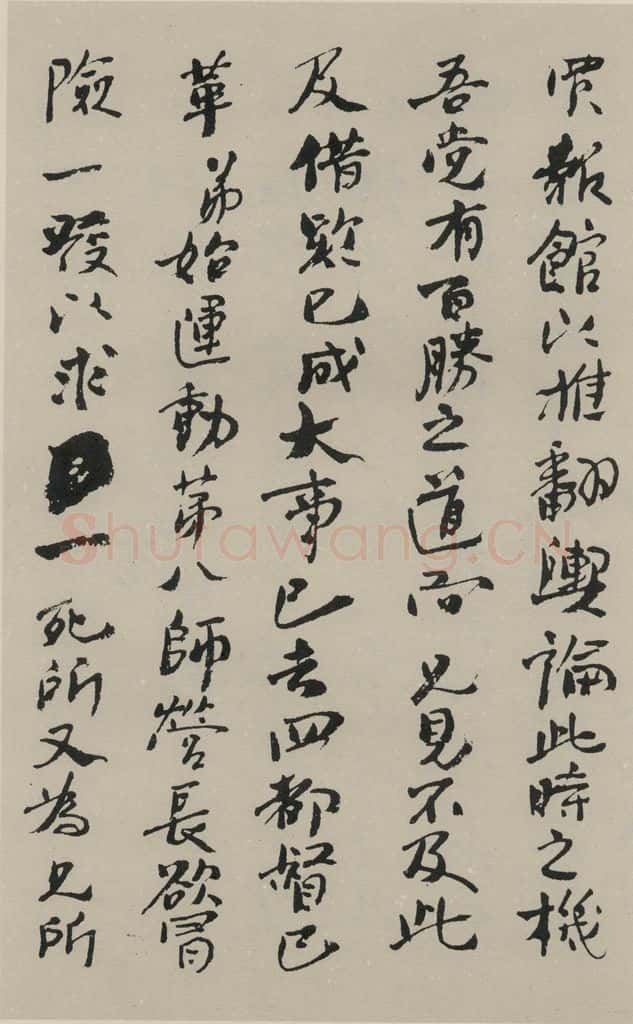 買報館以推翻輿論此時之機
吾党有百勝之道而兄見不及此
及借款已成大事已去四都督已
革弟始運動第八師營長欲冒
險一發以求一死所又為兄所
Shufawang.CN